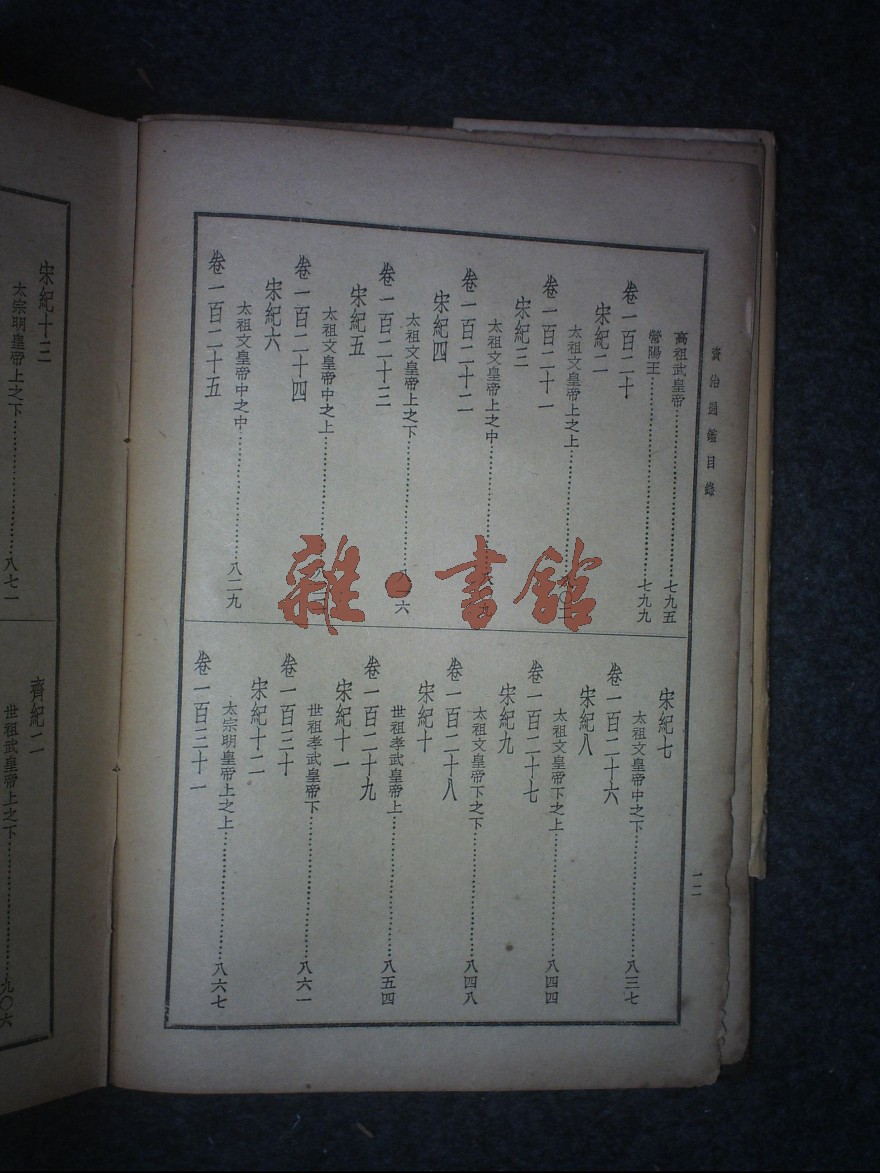 資治通鑑目錄
高祖武皇帝……七九五
營陽王……七九九
卷一百二十
宋紀二
太祖文皇帝上之上……
卷一百二十一
宋紀三
太祖文皇帝上之中……
卷一百二十二
宋紀四
太祖文皇帝上之下……六
卷一百二十三
宋紀五
太祖文皇帝中之上……
卷一百二十四
宋紀六
太祖文皇帝中之中……八二九
卷一百二十五
宋紀七
太祖文皇帝中之下……八三七
卷一百二十六
宋紀八
太祖文皇帝下之上……八四四
卷一百二十七
宋紀九
太祖文皇帝下之下……八四八
卷一百二十八
宋紀十
世祖孝武皇帝上……八五四
卷一百二十九
宋紀十一
世祖孝武皇帝下……八六一
卷一百三十
宋紀十二
太宗明皇帝上之上……八六七
卷一百三十一
一二
宋紀十三
太宗明皇帝上之下……八七一
齊紀二
世祖武皇帝上之下……九〇六
雜·書館